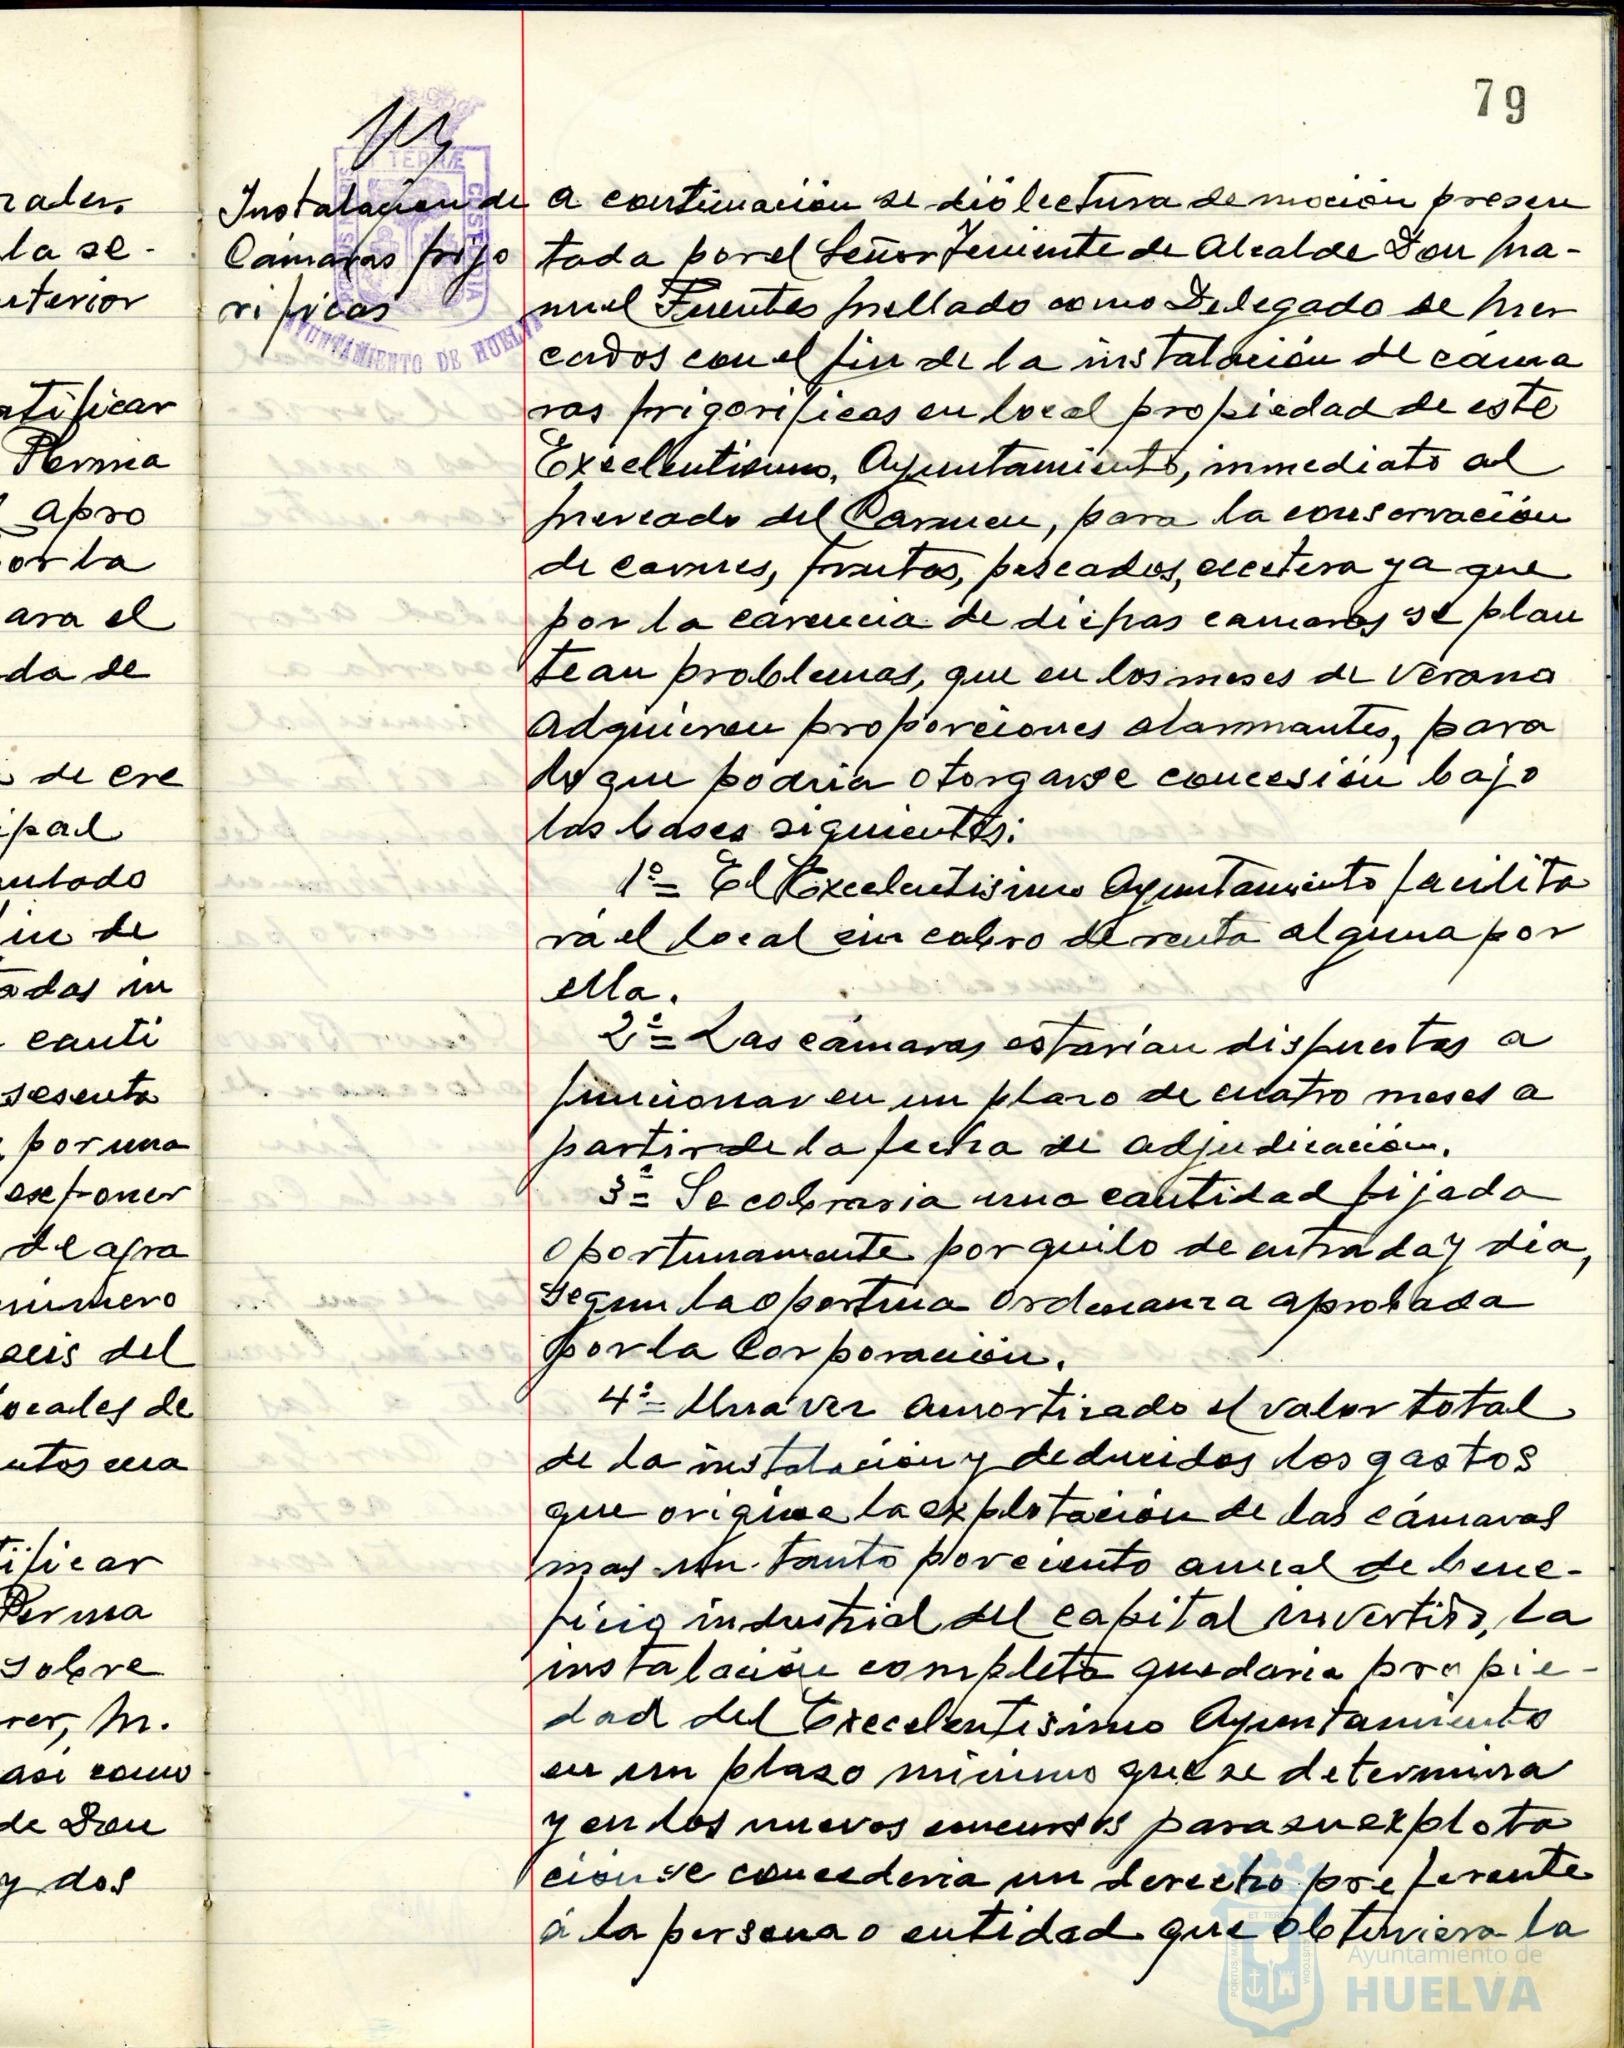 79
rales.
la se-
nterior
atificar
Perma
apro
or la
ara el
da de
de cre
ipal
in de
adas in
canti
sesenta
por una
exponer
de agra
número
seis del
locales de
tificar
Perma
sobre
rer, M.
asi como
de Don
y dos
Instalación de
Cámaras frigo
rificas
PORTUS MARIS ET TERRÆ CUSTODIA
AYUNTAMIENTO DE HUELVA
a continuación se dió lectura de moción presen
tada por el Señor Teniente de Alcalde Don Ma-
nuel Fuentes Mellado como Delegado de Mer
cados con el fin de la instalación de cáma
ras frigorificas en local propiedad de este
Excelentisimo, Ayuntamiento, inmediato al
mercado del Carmen, para la conservación
de carnes, frutas, pescados, ecetera ya que
por la carencia de dichas camaras se plan
tean problemas, que en los meses de verano
adquieren proporciones alarmantes, para
lo que podria otorgarse concesión bajo
las bases siguientes:
1º= El Excelentisimo Ayuntamiento facilita
rá el local sin cobro de renta alguna por
ella.
2º= Las cámaras estarían dispuestas a
funcionar en un plazo de cuatro meses a
partir de la fecha de adjudicación.
3º= Se cobraria una cantidad fijada
oportunamente por quilo de entrada y dia,
segun la oportuna ordenanza aprobada
por la Corporación.
4º= Una vez amortizado el valor total
de la instalación y deducidos los gastos
que origine la explotación de las cámaras
mas un tanto por ciento anual de bene-
ficio industrial del capital invertido, la
instalación completa quedaria propie-
dad del Excelentisimo Ayuntamiento
en un plazo minimo que se determina
y en los nuevos concursos para su explota
ción se concederia un derecho preferente
á la persona o entidad que obtuviera la
Ayuntamiento de
HUELVA